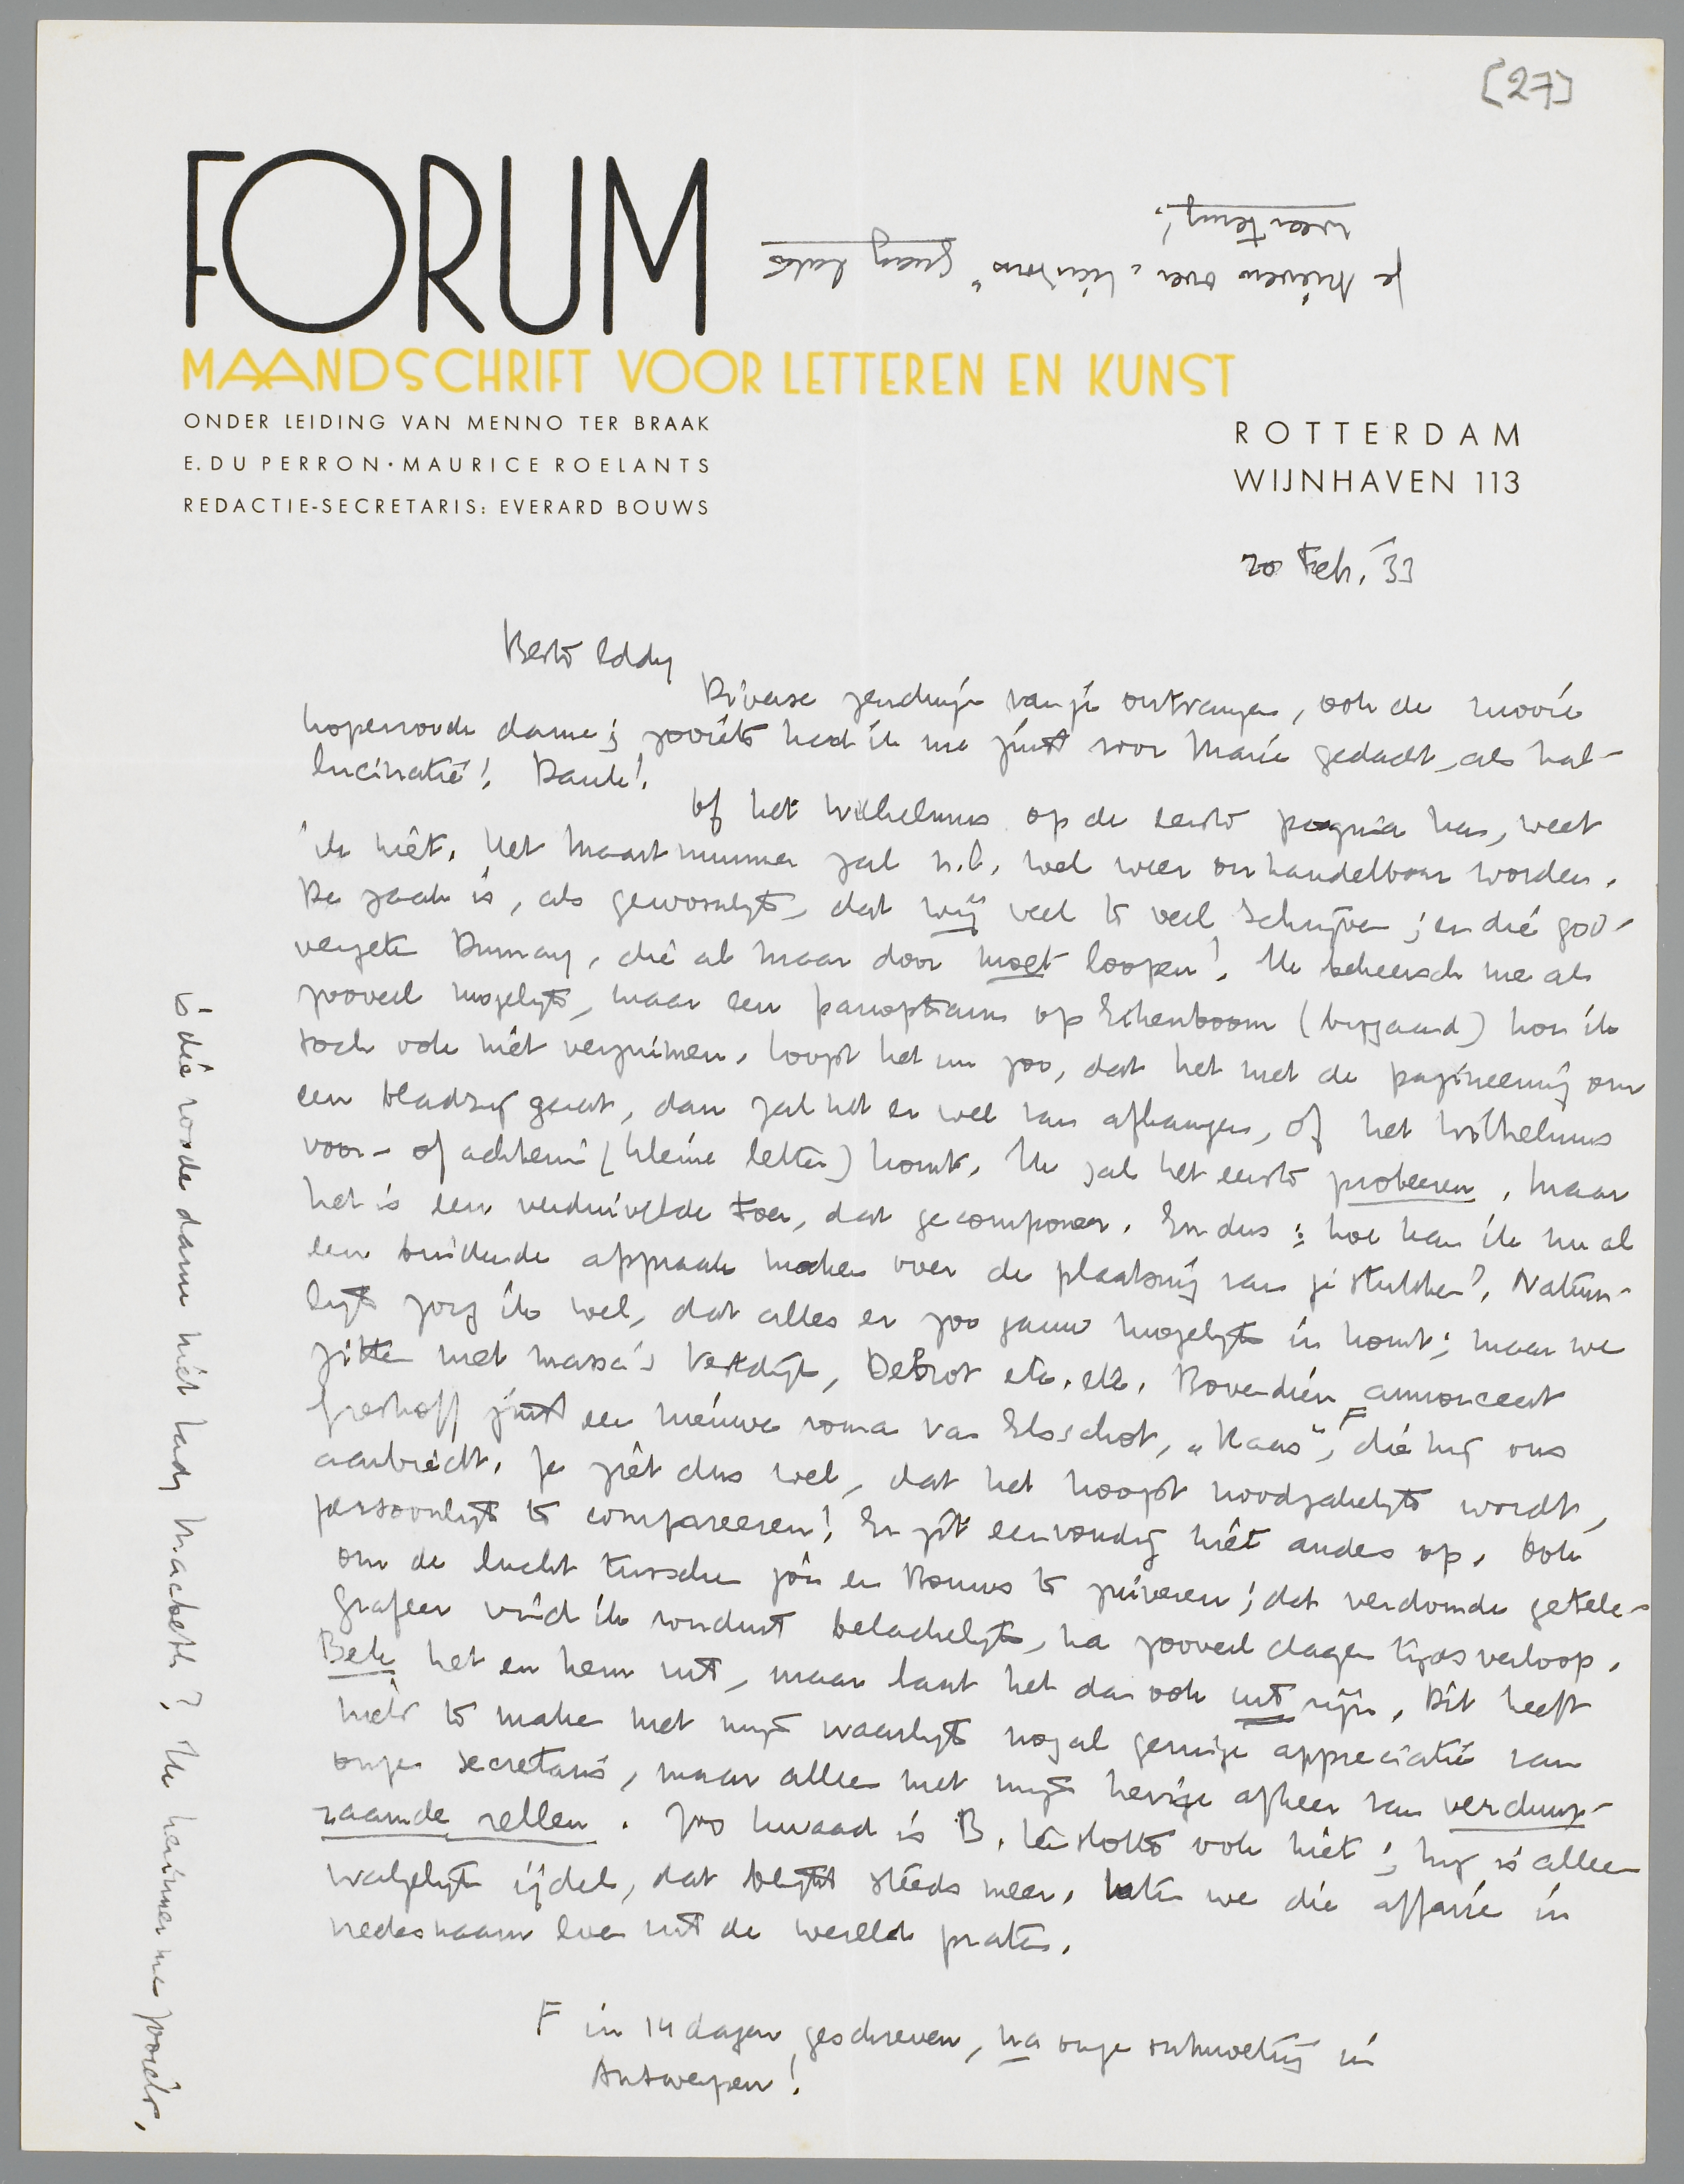 [27]
FORUM
MAANDSCHRIFT VOOR LETTEREN EN KUNST
ONDER LEIDING VAN MENNO TER BRAAK
E. DU PERRON · MAURICE ROELANTS
REDACTIE-SECRETARIS: EVERARD BOUWS
ROTTERDAM
WIJNHAVEN 113
je brieven over graag laten
weer terug!
20 Febr. '33
Beste Eddy
Diverse zendingen van je ontvangen, ook de mooie
koperroode dame; zooiets had ik me juist voor Marie gedacht, als hal-
lucinatie! Dank!
Of het Wilhelmus op de eerste pagina kan, weet
ik niet. Het Maartnummer zal n.l. wel weer onhandelbaar worden.
De zaak is, als gewoonlijk, dat wij veel te veel schrijven; en die god-
vergeten Dumay, die al maar door moet loopen! Ik beheersch me als
zooveel mogelijk, maar een panopticum op Eikenboom (bijgaand) kon ik
toch ook niet verzuimen. Loopt het nu zoo, dat het met de pagineering om
een bladzij gaat, dan zal het er wel van afhangen, of het Wilhelmus
voor- of achterin (kleine letter) komt. Ik zal het eerste probeeren, maar
het is een verduivelde toer, dat gecomponeer. En dus: hoe kan ik nu al
een bindende afspraak maken over de plaatsing van je stukken? Natuur-
lijk zorg ik wel, dat alles er zoo gauw mogelijk in komt; maar we
zitten met massa's Vestdijk, Debrot etc. etc. Bovendien annonceert
Greshoff juist een nieuwe roman van Elsschot, „Kaas", F die hij ons
aanbiedt. Je ziet dus wel, dat het hoogst noodzakelijk wordt,
persoonlijk te compareeren! Er zit eenvoudig niet anders op. Ook
om de lucht tusschen jou en Bouws te zuiveren; dat verdomde getele-
grafeer vind ik ronduit belachelijk, na zooveel dagen tijdsverloop.
Bek het en hem uit, maar laat het dan ook uit zijn. Dit heeft
niets te maken met mijn waarlijk nogal geringe appreciatie van
onzen secretaris, maar alleen met mijn hevige afkeer van verduur-
zaamde rellen. Zoo kwaad is B. ten slotte ook niet; hij is alleen
walgelijk ijdel, dat blijkt steeds meer. Laten we die affaire in
vredesnaam even uit de wereld praten.
F in 14 dagen geschreven, na onze ontmoeting in
Antwerpen!
Is die roode dame niet Lady Macbeth? Ik herinner me zooiets.